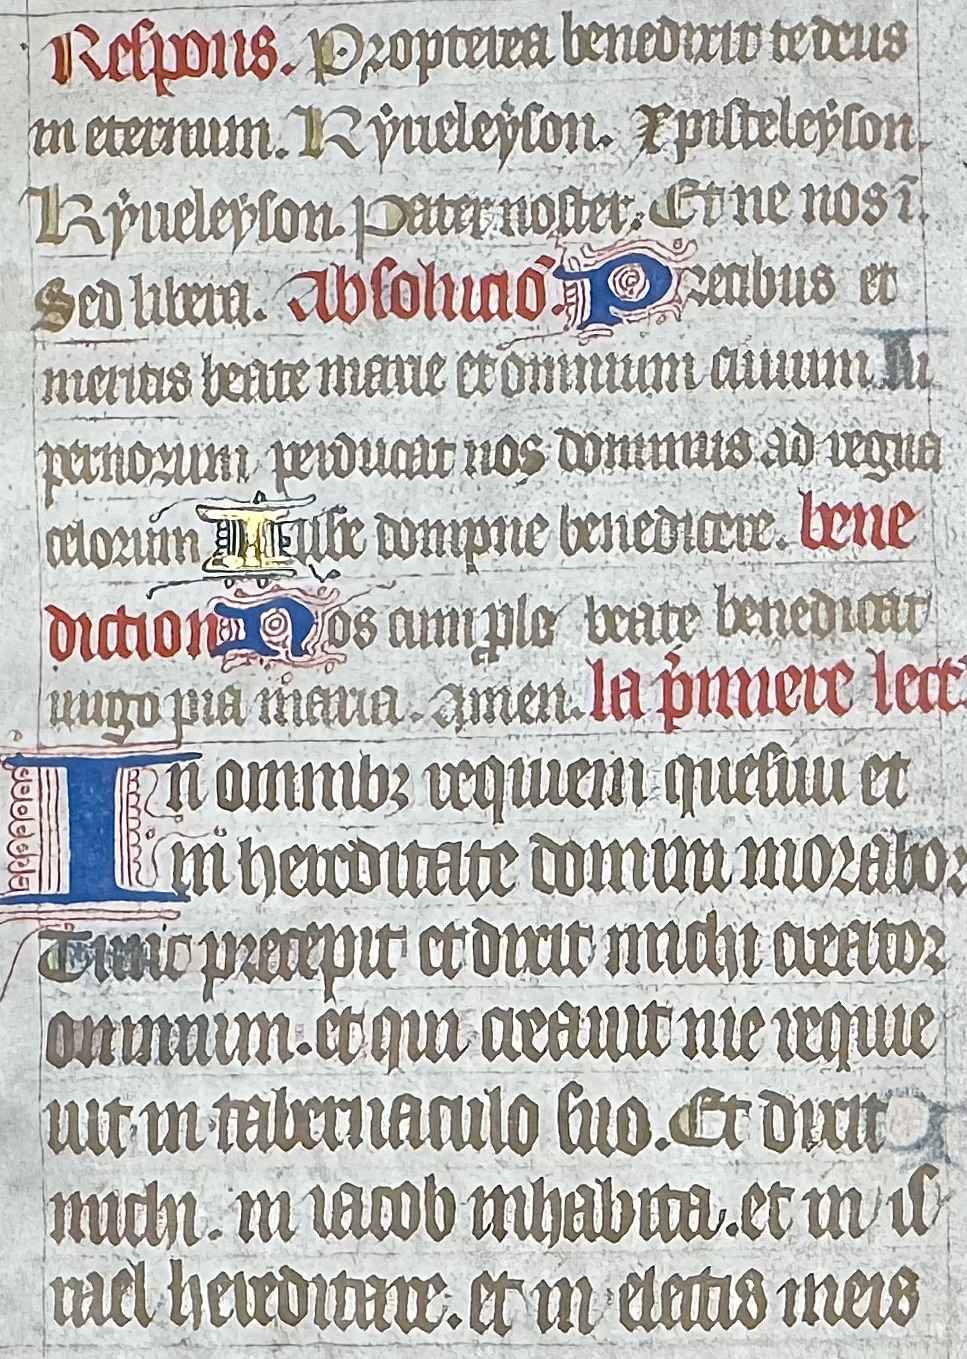 Respons. Propterea benedixit te deus
in eternum. Kyrieleyson. Xpisteleyson.
Kyrieleyson. Pater noster. Et ne nos ī.
Sed libera. Absolucio Precibus et
meritis beate marie et omnium ciuium
pernorum perducat nos dominus ad regna
celorum Iube dompne benedicere. bene
diction Nos cum ple beate benedicat
uirgo pia maria. Amen. la pmiere lect
In omnibꝫ requiem quesiui et
in hereditate domini morabor
Tunc precepit et dixit michi creator
omnium. et qui creauit me requie
uit in tabernaculo suo. Et dixit
michi. in iacob inhabita. et in is
rael hereditare. et in electis meis